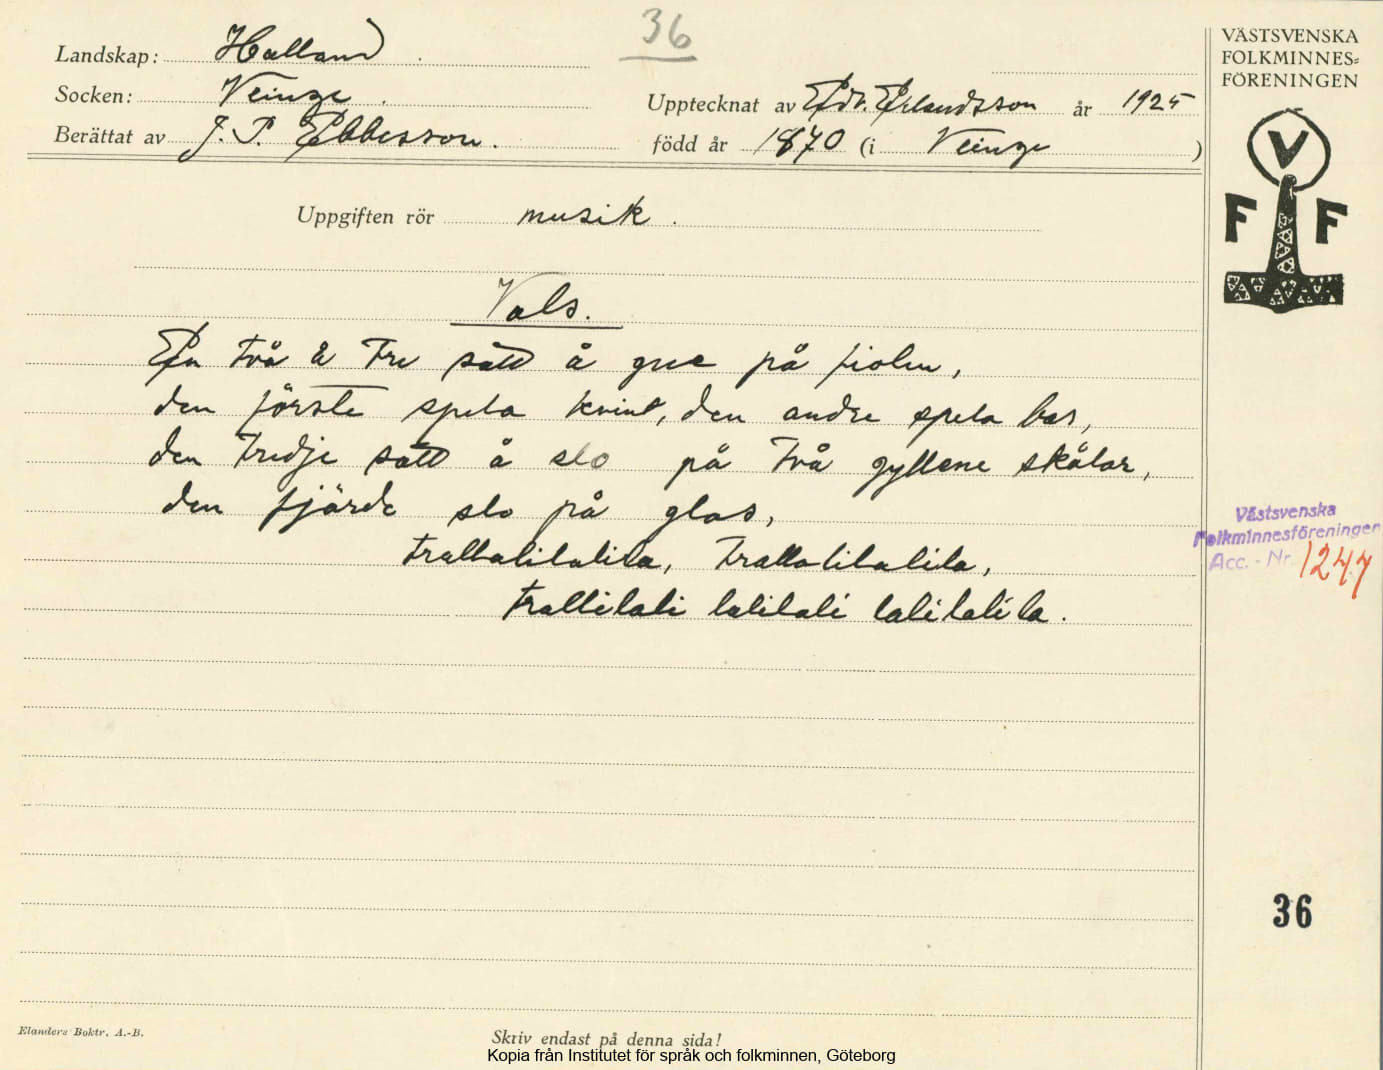 36
Landskap: Halland.
Socken: Veinge.
Upptecknat av Edv. Erlandsson år 1925
Berättat av J. P. Ebbesson.
född år 1870 (i Veinge)
Uppgiften rör musik.
Vals.
En två å tre satt å gne på fiolen,
den förste spela kvint, den andre spela bas,
den tredje satt å slo på två gyllene skålar,
den fjärde slo på glas,
trallalilalila, trallalilalila,
trallilali lalilali lalilalila.
VÄSTSVENSKA
FOLKMINNES=
FÖRENINGEN
V
F F
Västsvenska
Folkminnesföreningen
Acc. - Nr. 1247
36
Elanders Boktr. A.-B.
Skriv endast på denna sida!
Kopia från Institutet för språk och folkminnen, Göteborg